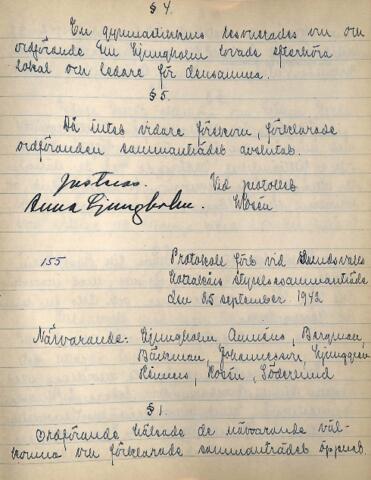 § 4.
En gymnastikkurs resonerades om och
ordförande Em Ljungholm lovade efterhöra
lokal och ledare för densamma.
§ 5.
Då intet vidare förekom, förklarade
ordföranden sammanträdet avslutat.
Justeras. Vid protokollet
Anna Ljungholm. Rosén
155 Protokoll fört vid Sundsvalls
styrelsesammanträde
den 25 september 1942
Närvarande: Ljungholm, Bergman,
Bäckman, Johannesson, Ljunggren
Rosén, Söderlund
§ 1.
Ordförande hälsade de närvarande väl-
komna och förklarade sammanträdet öppnat.